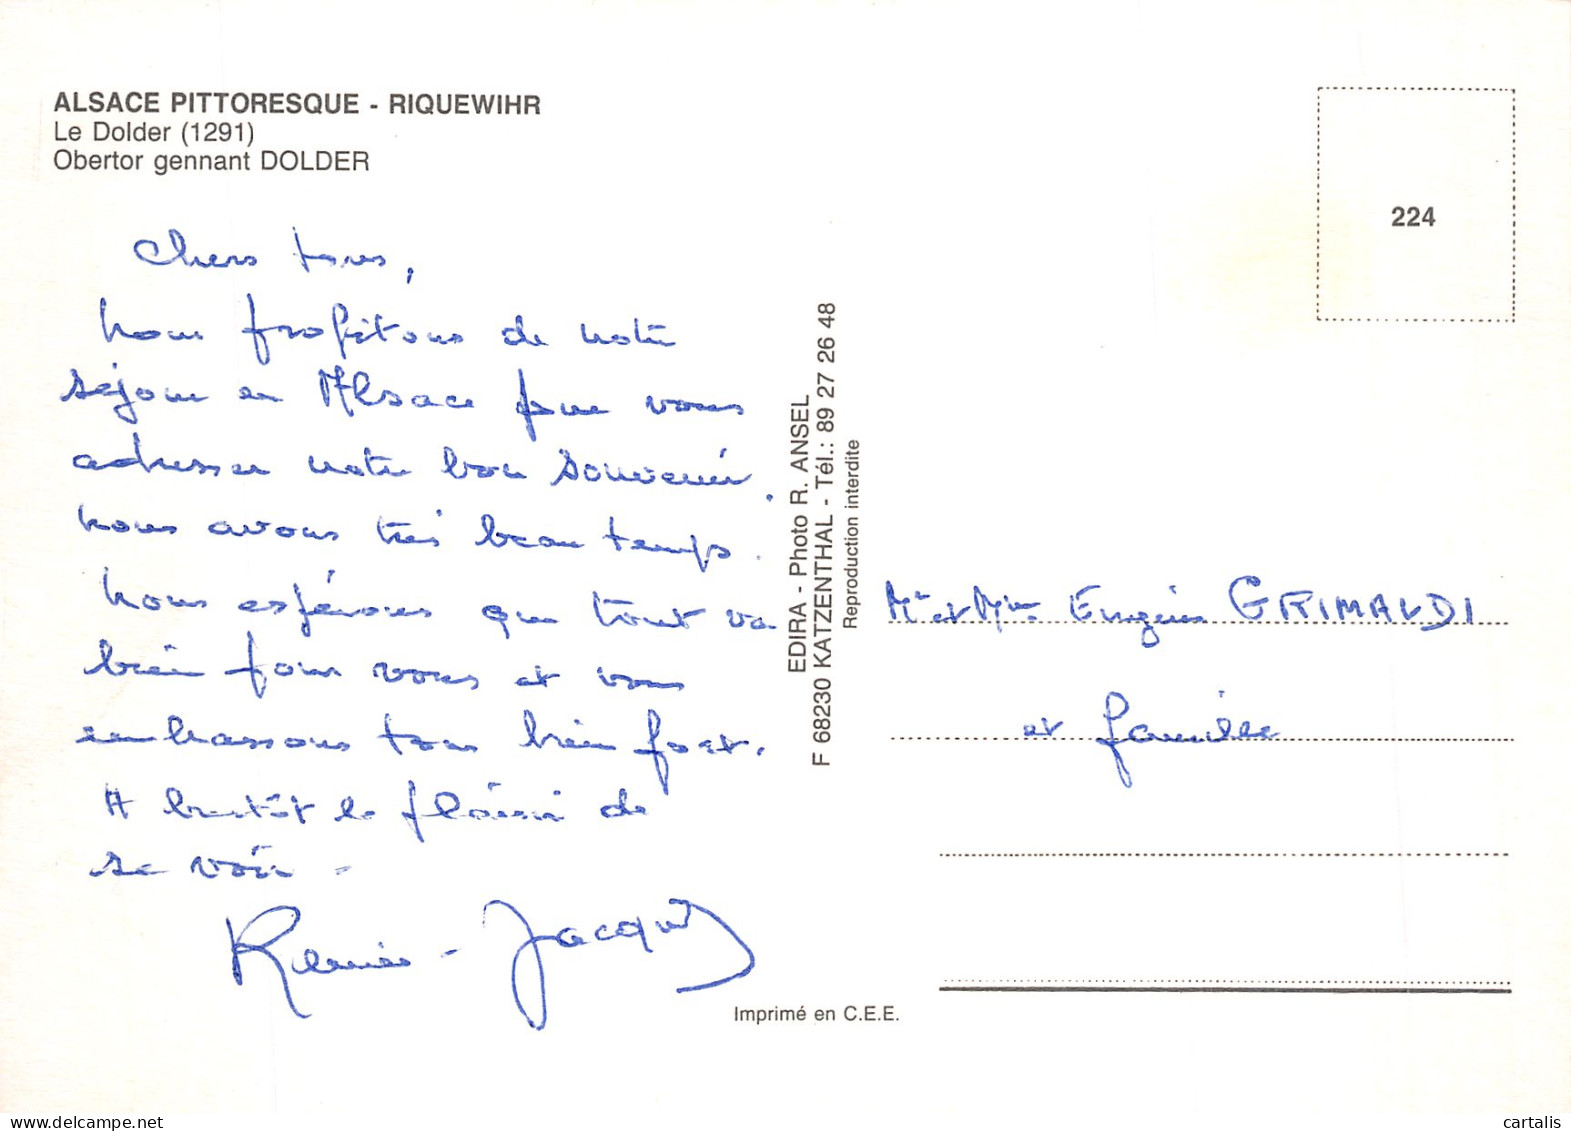 ALSACE PITTORESQUE - RIQUEWIHR
Le Dolder (1291)
Obertor gennant DOLDER
224
Chers tous,
nous profitons de notre
séjour en Alsace pour vous
adresser notre bon souvenir.
nous avons très beau temps.
nous espérons que tout va
bien pour vous et vous
embrassons tous bien fort.
A bientôt le plaisir de
se voir -
- Jacques
EDIRA - Photo R. ANSEL
F 68230 KATZENTHAL - Tél.: 89 27 26 48
Reproduction interdite
Mr et Mme Eugène GRIMALDI
et famille
Imprimé en C.E.E.
cartalis